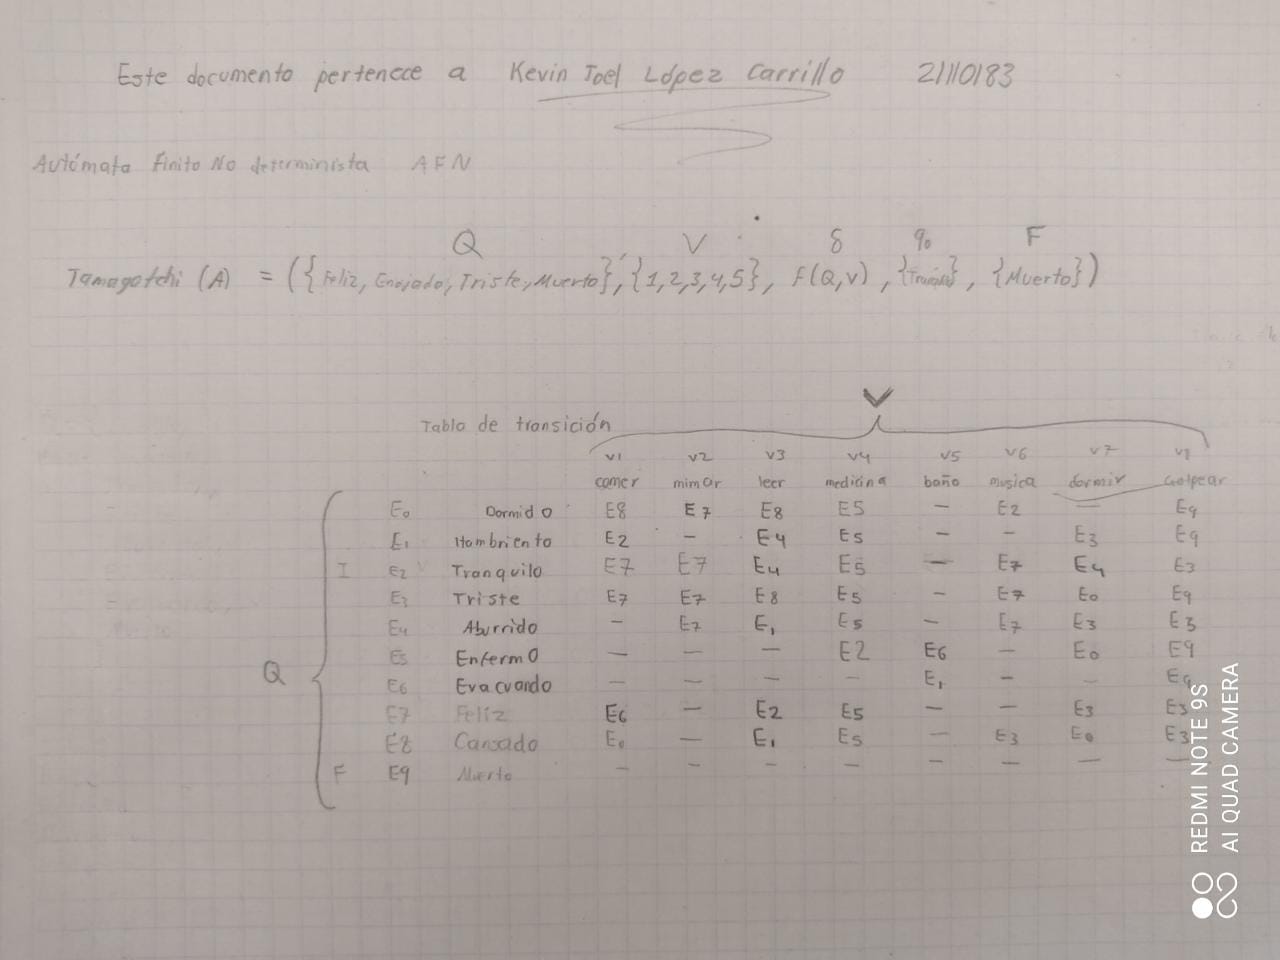 Este documento pertenece a Kevin Joel López Carrillo 21110183
Autómata Finito No determinista AFN
Q V δ q0 F
Tamagotchi (A) = ({Feliz, Enojado, Triste, Muerto}, {1,2,3,4,5}, F(Q,V), {Tranquilo}, {Muerto})
V
Tabla de transición
v1 v2 v3 v4 v5 v6 v7 v8
comer mimar leer medicina baño musica dormir Golpear
E0 Dormido E8 E7 E8 E5 — E2 — E9
E1 Hambriento E2 - E4 E5 — - E3 E9
I E2 Tranquilo E7 E7 E4 E5 — E7 E4 E3
E3 Triste E7 E7 E8 E5 - E7 E0 E9
E4 Aburrido - E7 E1 E5 — E7 E3 E3
E5 Enfermo — — — E2 E6 — E0 E9
Q
E6 Evacuando — — — — E1 — — E9
E7 Feliz E6 — E2 E5 — — E3 E3
E8 Cansado E0 — E1 E5 — E3 E0 E3
F E9 Muerto — — — — — — — —
REDMI NOTE 9S
AI QUAD CAMERA